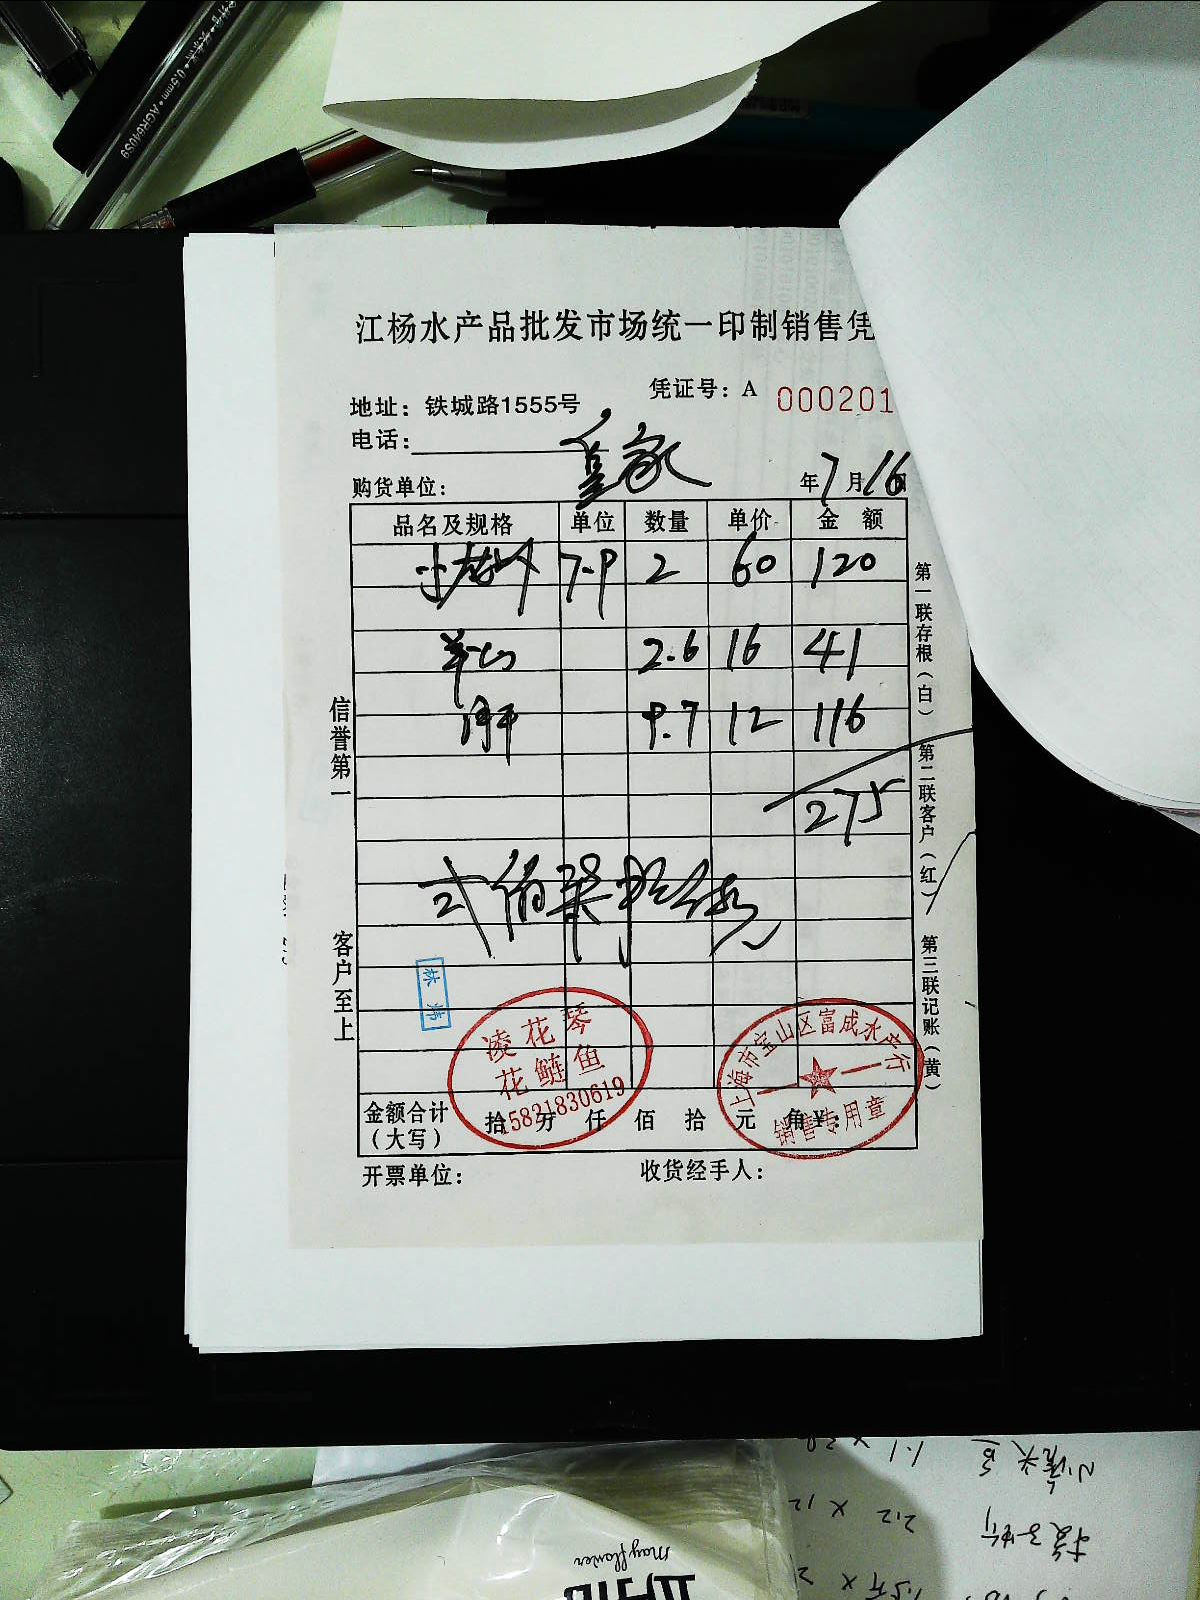 0.5mm•AGR640S9
江杨水产品批发市场统一印制销售凭
凭证号：A 000201
地址：铁城路1555号
电话：
皇家
购货单位：
年7月16日
品名及规格 单位 数量 单价 金额
小龙虾 7-9 2 60 120
2.6 16 41
9.7 12 116
275
贰佰柒拾伍元
信誉第一
客户至上
第一联存根（白）
第二联客户（红）
第三联记账（黄）
林炜
凌花琴
花鲢鱼
15821830619
上海市宝山区富成水产行
销售专用章
金额合计（大写） 拾 万 仟 佰 拾 元 角 ¥：
开票单位：
收货经手人：
Mayflower
212 X 12